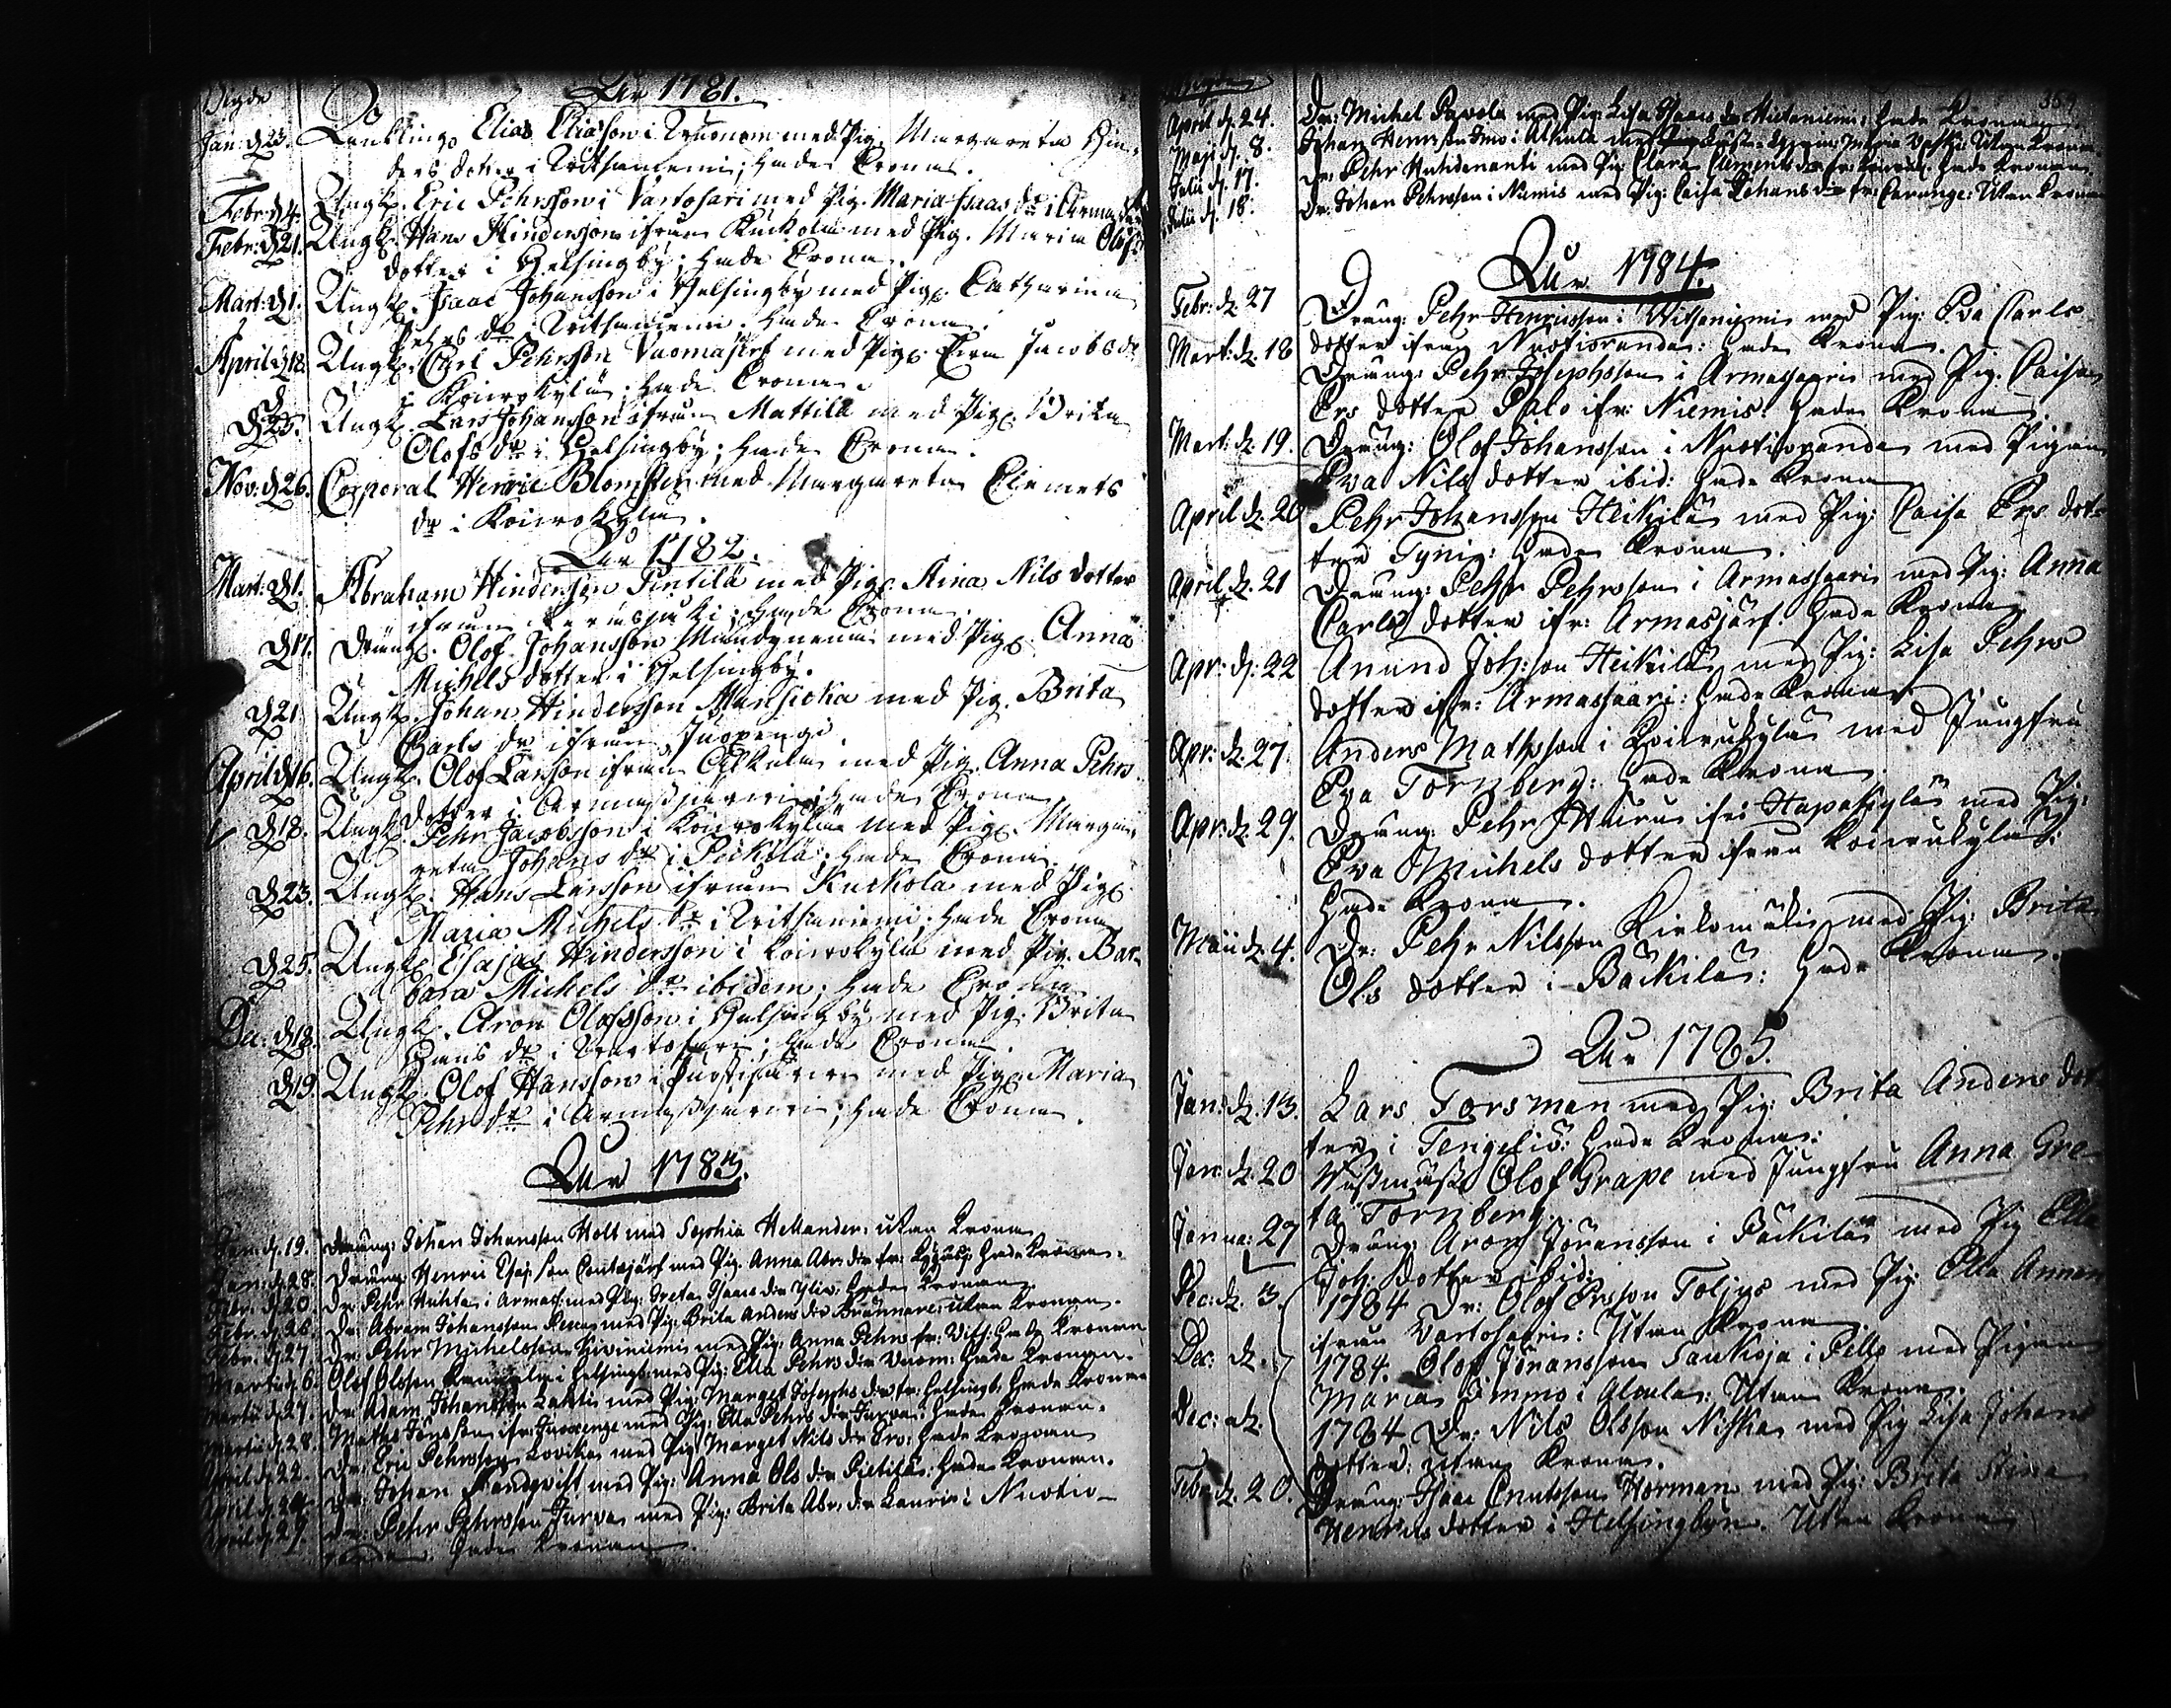 Vigde
Åhr 1781.
Jan: d 23. Länkling Elias Eliasson i med Pig. Margareta Hin-
ders dotter i Ruthaniemi; hade Crona.
Febr: d 4. Ungk. Eric Pehrsson i Vartosari med Pig. Maria Isaacs dr i
Febr: d 21. Ungk. Hans Hindersson ifrån Kuckola med Pig. Maria Olofs
dotter i Helsingby; hade Crona.
Mart: d 1. Ungk. Isaac Johansson i Helsingby med Pig. Catharina
Pehrs dr i hade Crona.
April d 18. Ungk. Carl Pehrsson Vuomajerf med Pig. Jacobs dr
i Koivukylä; hade Crona.
d 23. Ungk. Lars Johansson ifrån Mattila med Pig. Brita
Olofs dr i Helsingby; hade Crona.
Nov: d 26. Corporal Henric Blomster med Margareta Clemets
dr i Koivokylä.
Åhr 1782.
Mart: d 1. Abraham Hindersson Pentilä med Pig. Stina Nils dotter
ifrån hade Crona.
d 17. Dräng. Olof Johansson med Pig. Anna
Michels dotter i Helsingby.
d 21. Ungk. Johan Hindersson Mansicka med Pig. Brita
Carls dr ifrån Juopengi.
April d 16. Ungk. Olof Larsson ifrån Alkula med Pig. Anna Pehrs
dotter i Armassaari; hade Crona
d 18. Ungk. Pehr Jacobsson i Koivokylä med Pig. Marga-
reta Johans dr i Päckilä; hade Crona.
d 23. Ungk. Hans Larsson ifrån Kuckola med Pig.
Maria Michels dr i Ruthaniemi; hade Crona
d 25. Ungk. Esajas Hindersson i Koivokylä med Pig. Bar-
bara Michels dr ibidem; hade Crona
Dec: d 18. Ungk. Aron Olofsson i Helsingby med Pig. Brita
Hans dr i Vartosari; hade Crona.
d 19. Ungk. Olof Hansson i med Pig. Maria
Pehrs dr i Armassaari; hade Crona.
Åhr 1783.
Jan: d. 19. Dräng: Johan Johansson Holt med Sophia Hellander: utan Krona
Jan: d. 28. Dräng: Henric Esajsson Contojärf med Pig. Anna Abr: dr fr: hade Krona.
Febr: d. 20. Dr: Pehr Huhta i Armass: med Pig: Greta Isaacs dr Ylis: hade Kronan
Febr: d. 26. Dr: Abram Johansson med Pig: Brita Anders dr utan Kronan.
Febr: d. 27. Dr: Pehr Michelsson Kiviniemi med Pig: Anna Pehrs fr: hade Kronan
Martii d. 6. Olof Olsson i Helsingb: med Pig: Ella Pehrs dr Vuom: hade Kronan.
Martii d. 27. Dr: Adam Johansson Lahti med Pig: Marget Josephs dr fr: Helsingb: hade Kronan
Martii d. 28. Maths Jönsson ifr: Juoxenge med Pig: Ella Pehrs dr Jurva: hade Kronan.
April d. 22. Dr: Eric Pehrsson Lovika med Pig: Marget Nils dr Arv: hade Kronan
April d. 24. Dr: Johan Sandqvist med Pig: Anna Ols dr Pietilä: hade Kronan.
April d. 29. Dr: Pehr Pehrsson Jurva med Pig: Brita Abr: dr Lauri i Nuotio-
randa. hade Kronan
359
April d. 24. Dr: Michel Pavola med Pig: Lisa Isaacs dr Hietaniemi: hade Kronan
Maji d. 8. Johan Henricsson Imo i Alkula med Maria Utan Krona
Julii d. 17. Dr: Pehr Huhdananti med Pig: Clara Clements dr hade Kronan.
Julii d. 18. Dr: Johan Pehrsson i Niemis med Pig: Caisa Johans dr fr: Carunge: Utan Kronan
Åhr 1984.
Febr: d. 27 Dräng: Pehr Henricsson i Vitsaniemi med Pig: Eva Carls
dotter ifrån Nuotioranda: hade Krona.
Mart: d. 18 Dräng: Pehr Josephsson i Armassaari med Pig: Caisa
Ers dotter Palo ifr: Niemis: hade Krona.
Mart: d. 19. Dräng: Olof Johansson i Nuotioranda med Pigan
Eva Nils dotter ibid: hade Krona
April d. 20 Pehr Johansson Heikilä med Pig: Caisa Ers dot-
ter Tyni: hade Krona.
April d. 21 Dräng: Pehr Pehrsson i Armassaari med Pig: Anna
Carls dotter ifr: Armasjärf: hade Krona
Apr: d. 22 Anund Joh:son Heikilä med Pig: Lisa Pehrs
dotter ifr: Armassaari: hade Krona
Apr: d. 27. Anders Mathsson i Koivukylä med Jungfru
Eva Tornberg: hade Krona
Apr: d. 29. Dräng: Pehr Huru ifr: Hapakylä med Pig:
Eva Michels dotter ifrån Koivukylä:
hade Krona.
Maii d. 4. Dr: Pehr Nilsson Kirkomäki med Pig: Brita
Ols dotter i Bäckilä: hade Krona.
Åhr 1785.
Jan: d. 13. Lars Forsman med Pig: Brita Anders dot
ter i Tengeliö: hade Krona:
Jan: d. 20 Olof Grape med Jungfru Anna Gre-
ta Tornberg.
Janua: 27 Dräng: Aron Jöransson i Päckilä med Pig Ella
Joh: dotter ibid:
Dec: d. 3. 1784 Dr: Olof Ersson Toljus med Pig: Ella Annan
ifrån Vartosaari: Utan Krona.
Dec: d. 7 1784. Olof Jöransson Saukoja i Pello med Pigan
Maria Simmo i Alkula: Utan Krona.
Dec: d. 1784 Dr: Nils Olsson Niska med Pig Lisa Johans
dotter: utan Krona.
Febr. d. 20. Dräng: Isaac Cnutsson Horman med Pig: Brita Stina
Henrics dotter i Helsingbyn. Utan Krona